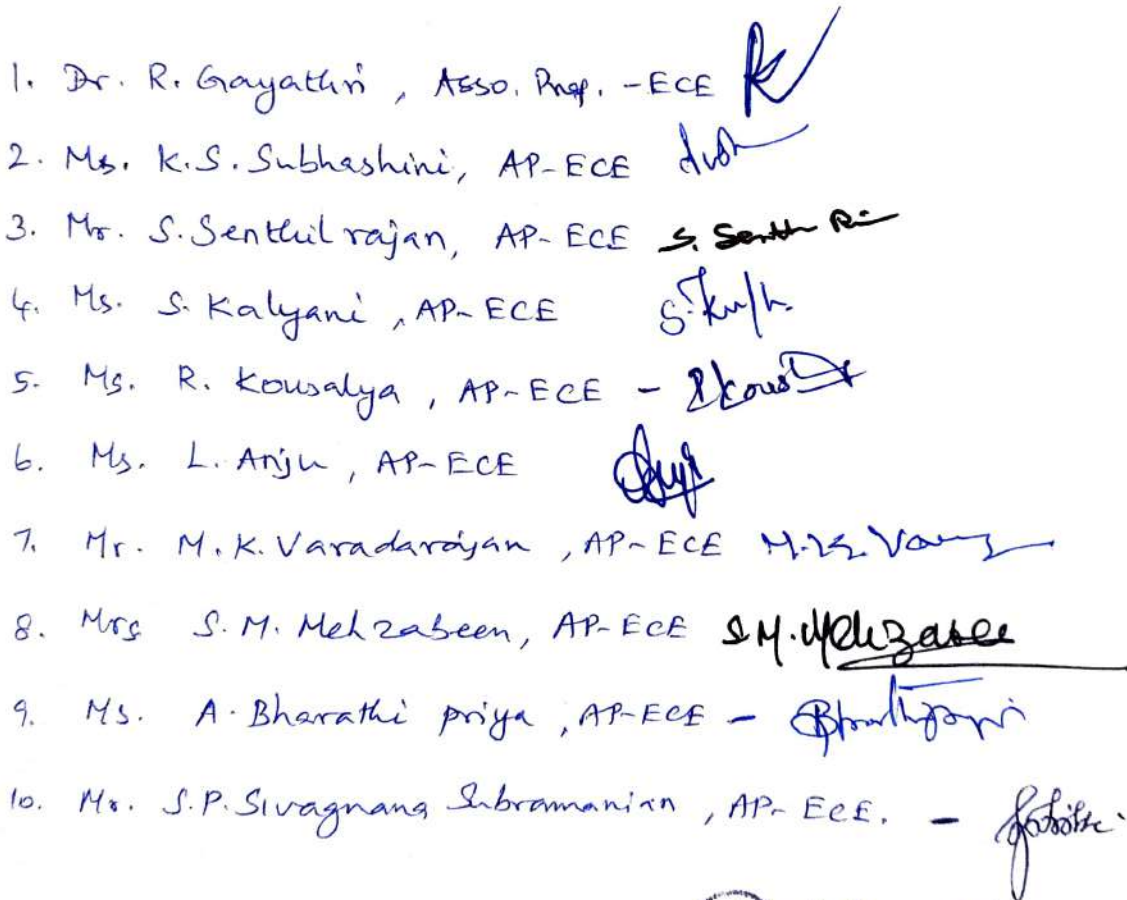 1. Dr. R. Gayathri, Asso. Prof. - ECE
2. Ms. K.S. Subhashini, AP-ECE
3. Mr. S. Senthil rajan, AP-ECE S. Senth
4. Ms. S. Kalyani, AP-ECE
5. Ms. R. Kousalya, AP-ECE -
6. Ms. L. Anju, AP-ECE
7. Mr. M.K. Varadarajan, AP-ECE M.K.
8. Mrs S.M. Mehzabeen, AP-ECE S M. Mehzabee
9. Ms. A. Bharathi priya, AP-ECE -
10. Mr. S.P. Sivagnana Subramanian, AP-ECE. -